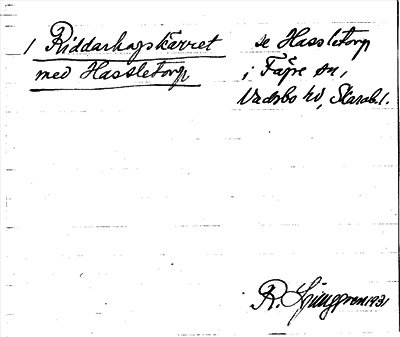 1 Riddarhagskärret
med Hassletorp
se Hassletorp
i Fägre sn,
Vadsbo hd, Skarab.l.
R. Ljunggren 1931